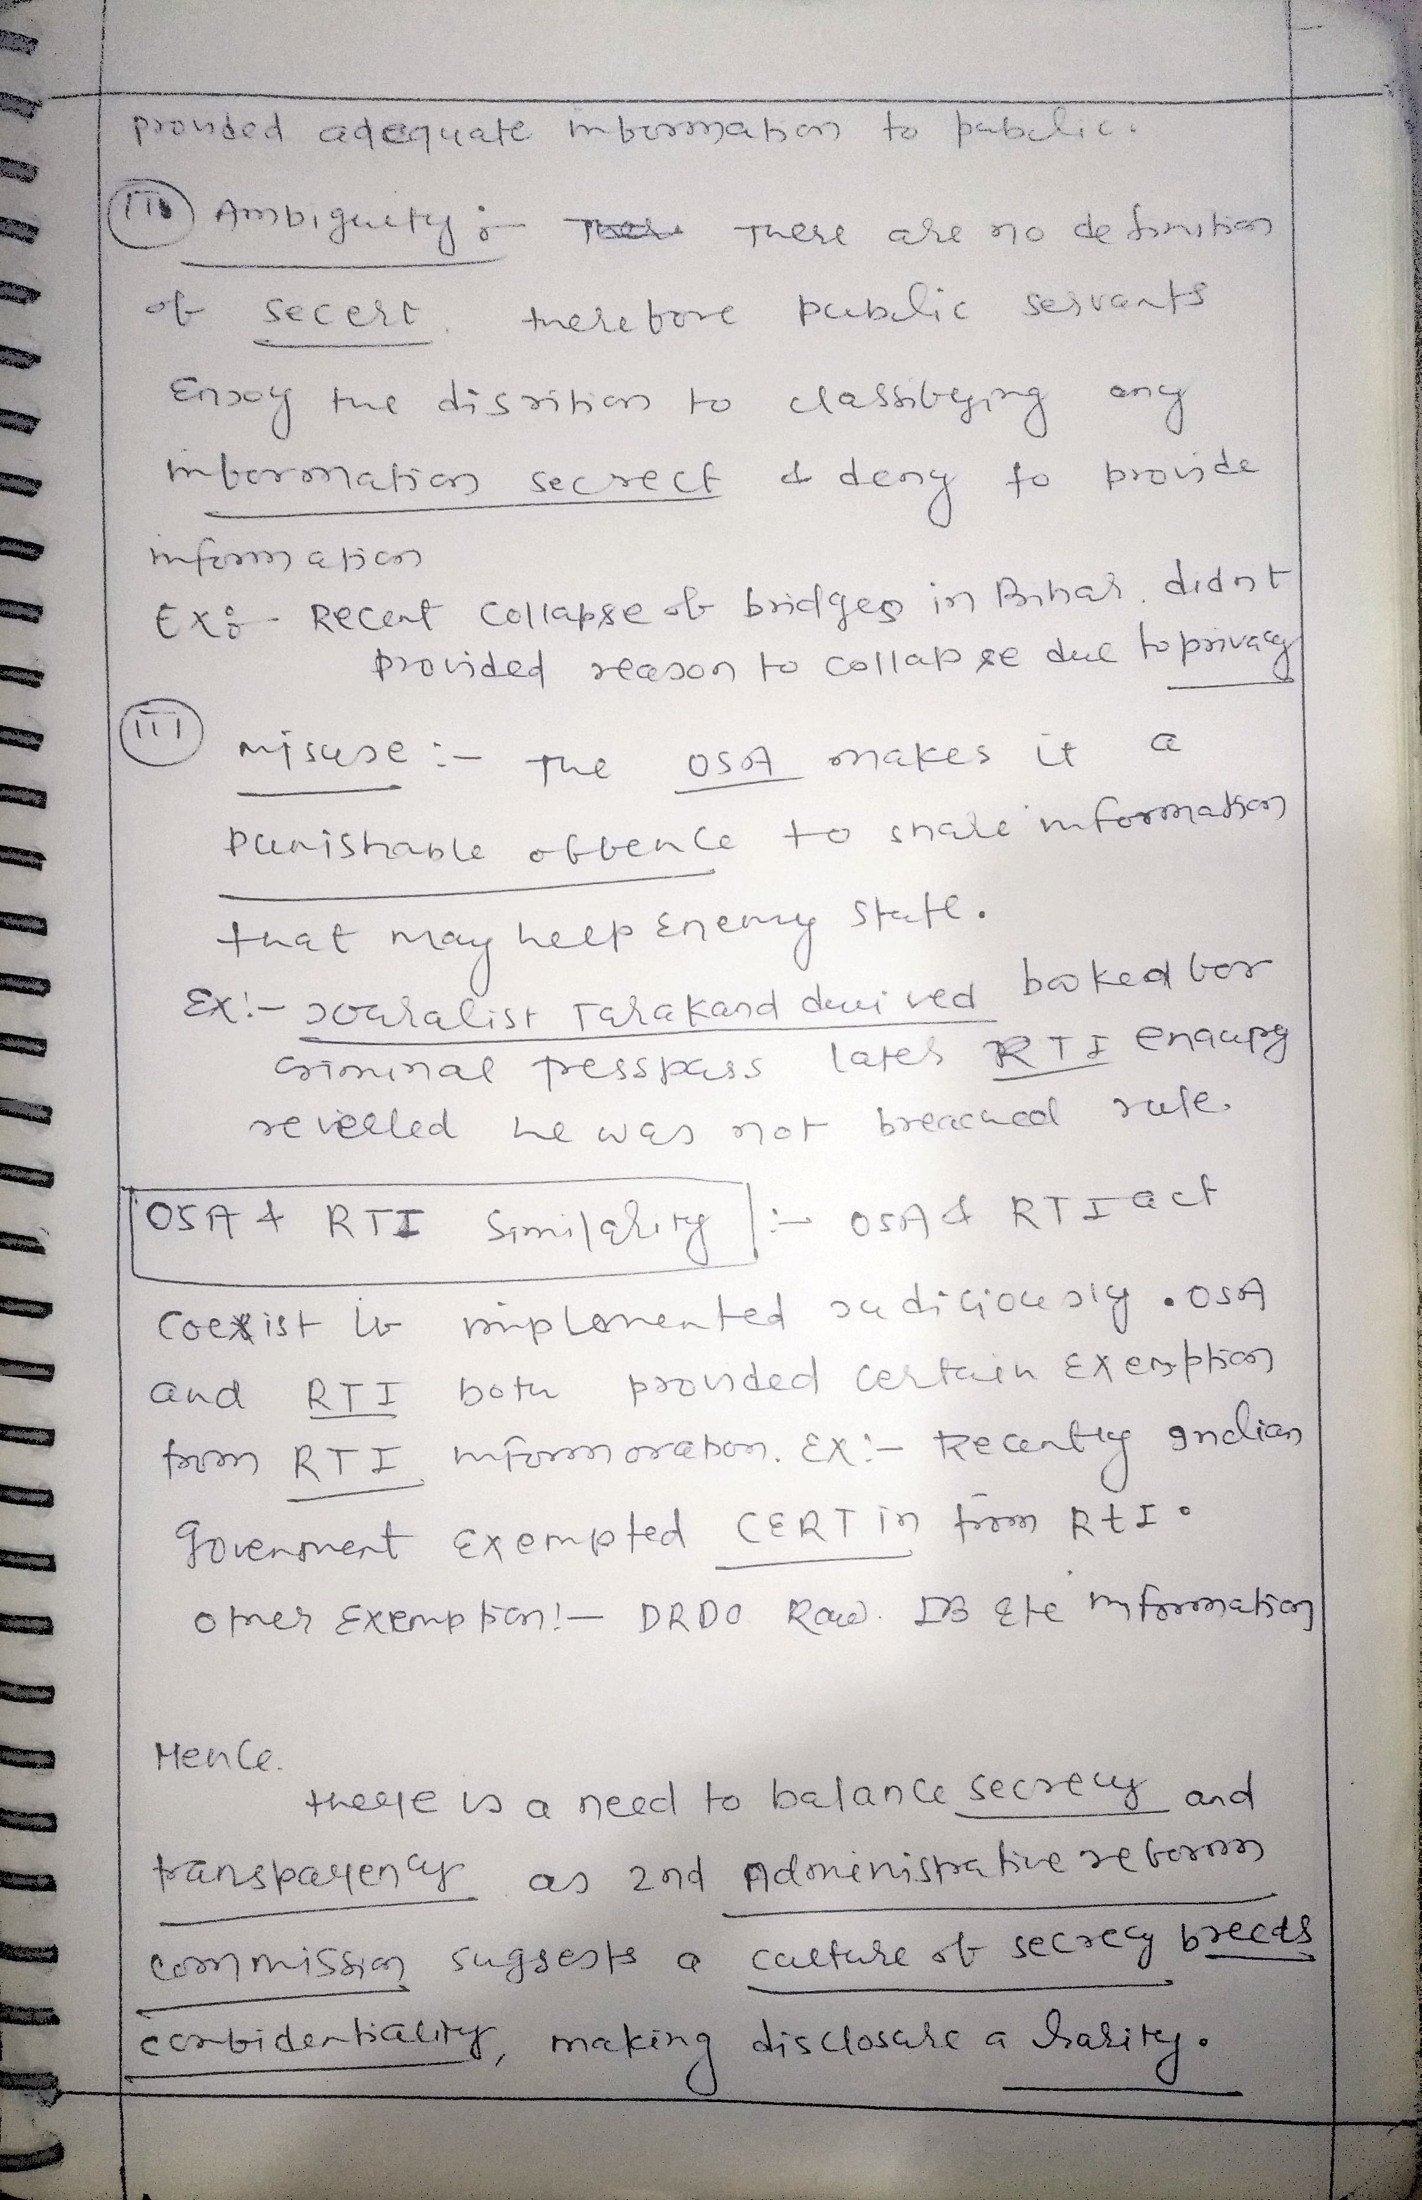 provided adequate information to public.
(ii) Ambiguity :- There are no definition
of secert. therefore public servants
Enjoy the disrition to classifying any
information secrect & deny to provide
information
Ex:- Recent collapse of bridges in Bihar. didnt
provided reason to collapse due to privacy
(iii) misuse :- The OSA makes it a
punishable offence to share information
that may help Enemy state.
Ex:- Jouralist Tarakand booked for
criminal tresspass later RTI
revelled he was not breached rule.
OSA & RTI Similarity :- OSA & RTI act
Coexist if implemented judiciously. OSA
and RTI both provided certain Exemption
from RTI information. Ex:- Recently Indian
government Exempted CERT in from RtI.
other Exemption:- DRDO Raw. IB Etc information
Hence.
there is a need to balance secrecy and
transparency as 2nd Administrative reform
commission suggests a culture of secrecy breeds
confidentiality, making disclosure a rarity.